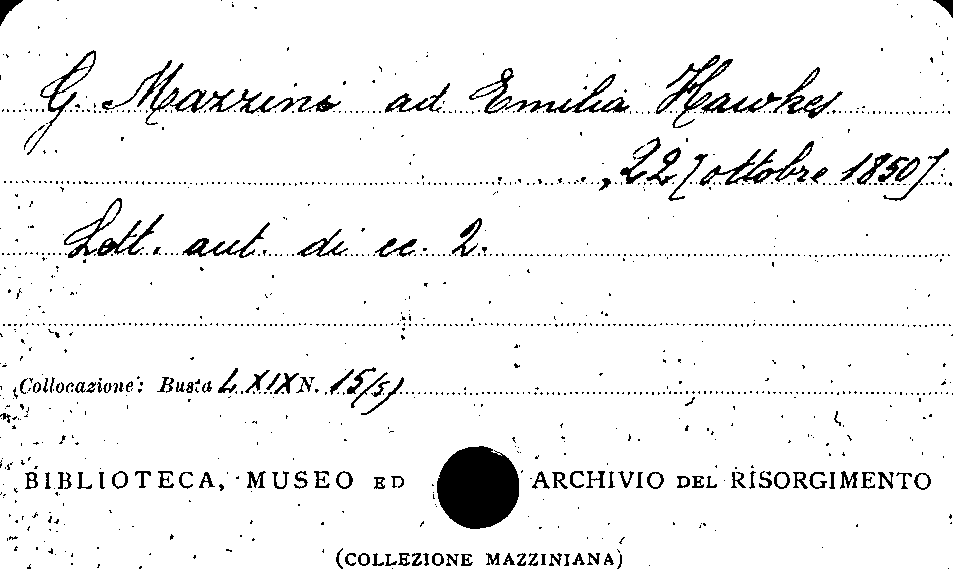 G. Mazzini ad Emilia Hawkes
....., 22 [ottobre 1850]
Lett. aut. di cc. 2.
Collocazione: Busta LXIX N. 15/5)
BIBLIOTECA, MUSEO ED ARCHIVIO DEL RISORGIMENTO
(COLLEZIONE MAZZINIANA)